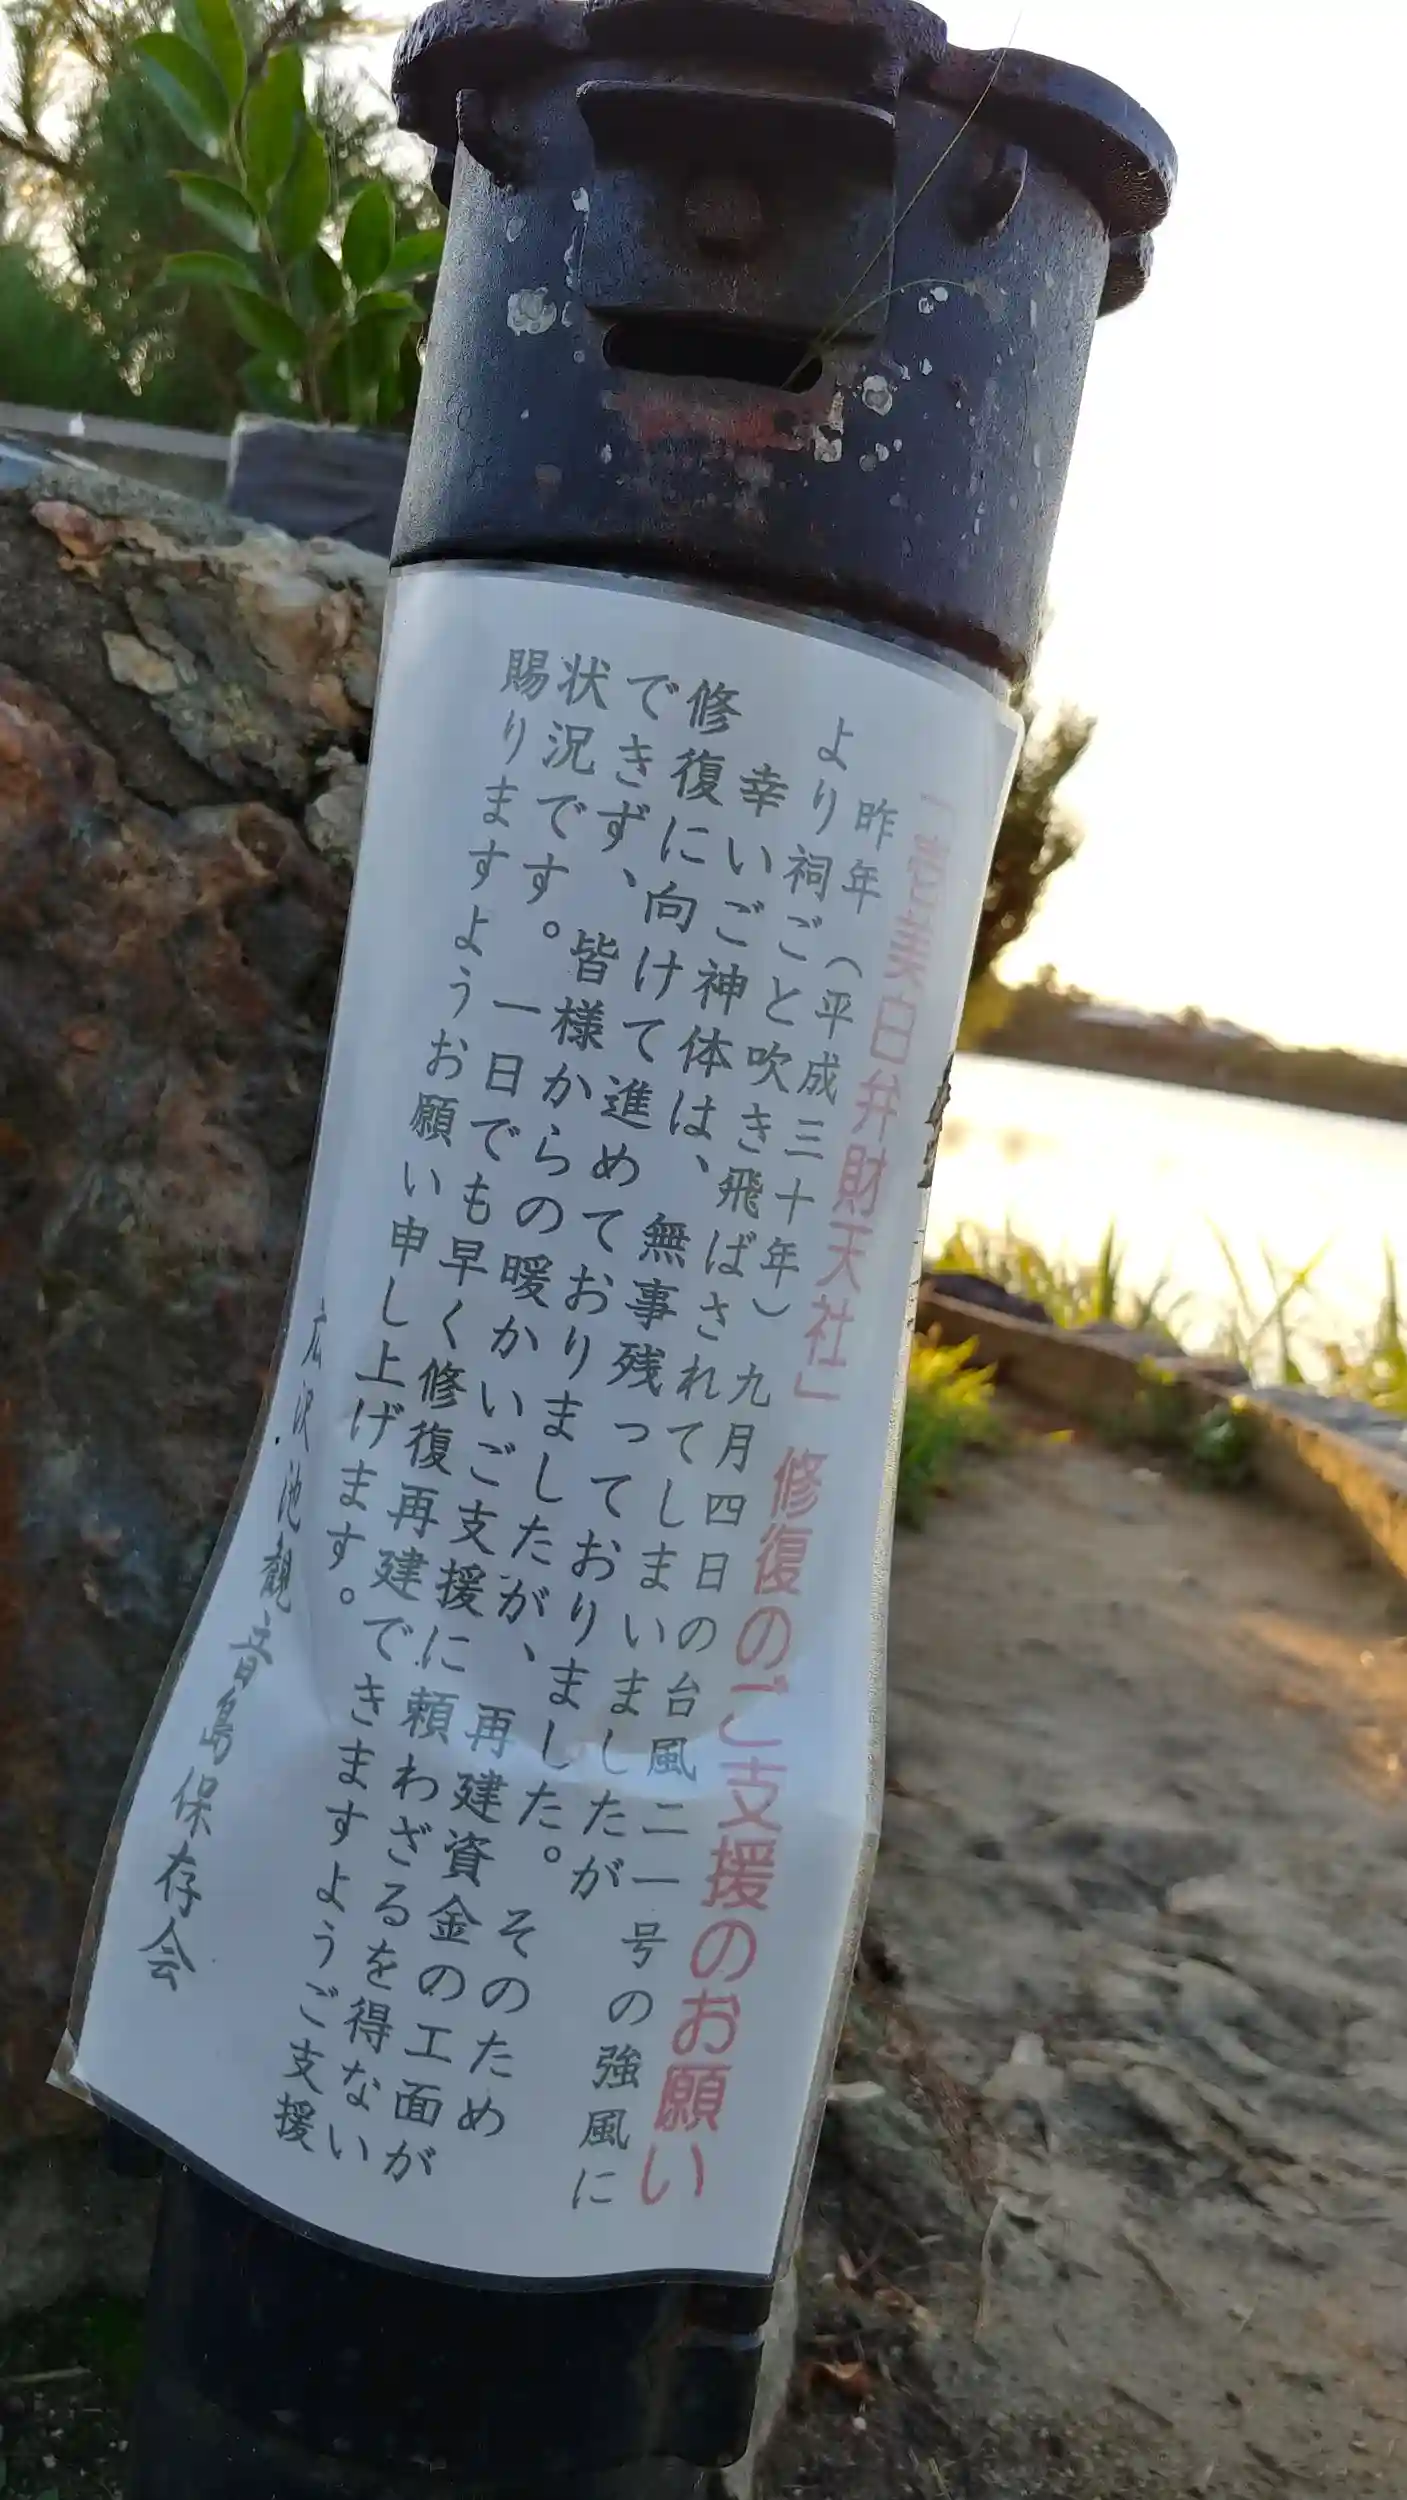 美白弁財天社」 修復のご支援のお願い
昨年(平成三十年) 九月四日の台風二一号の強風に
より祠ごと吹き飛ばされてしまいましたが
幸いご神体は、無事残っておりました。 そのため
修復に向けて進めておりましたが、再建資金の工面が
できず、皆様からの暖かいご支援に頼わざるを得ない
状況です。一日でも早く修復再建できますようご支援
賜りますようお願い申し上げます。
広沢池観音島保存会